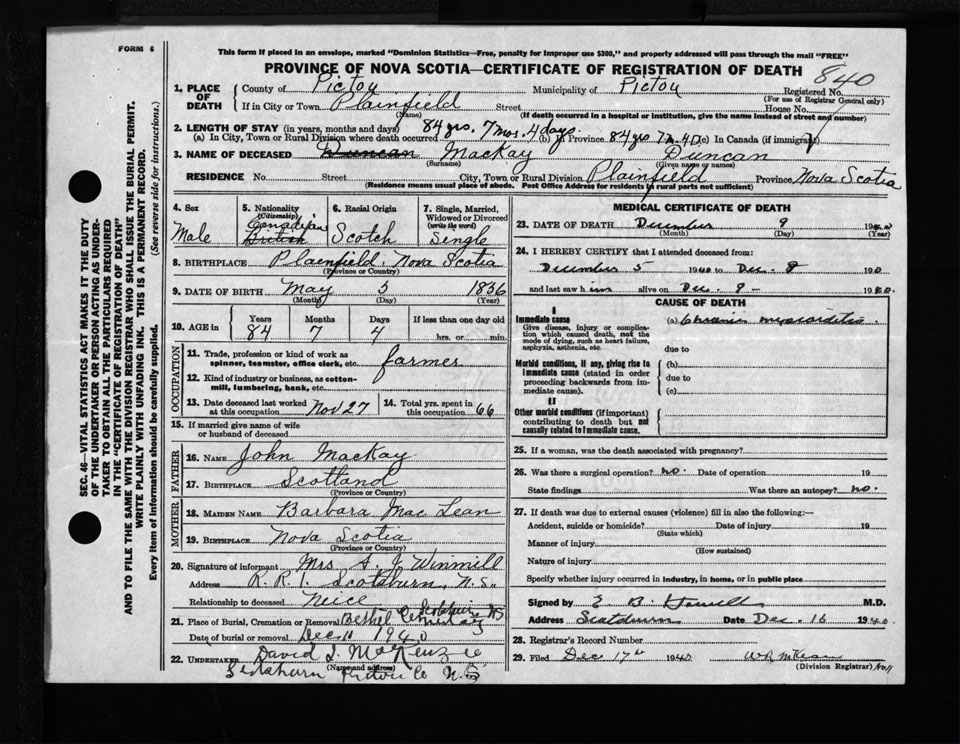 FORM 6
This form if placed in an envelope, marked "Dominion Statistics—Free, penalty for improper use $300," and properly addressed will pass through the mail "FREE"
PROVINCE OF NOVA SCOTIA—CERTIFICATE OF REGISTRATION OF DEATH
840
1. PLACE OF DEATH County of Pictou Municipality of Pictou Registered No.
(For use of Registrar General only)
If in City or Town Plainfield Street House No.
(Name) (If death occurred in a hospital or institution, give the name instead of street and number)
2. LENGTH OF STAY (in years, months and days) 84 yrs. 7 mos. 4 days.
(a) In City, Town or Rural Division where death occurred (b) in Province 84 yrs 7 m. 4 D (c) In Canada (if immigrant)
3. NAME OF DECEASED Duncan MacKay Duncan
(Surname) (Given name or names)
RESIDENCE No. Street City, Town or Rural Division Plainfield Province Nova Scotia
(Residence means usual place of abode. Post Office Address for residents in rural parts not sufficient)
4. Sex
Male
5. Nationality
(Citizenship)
Canadian
British
6. Racial Origin
Scotch
7. Single, Married, Widowed or Divorced
(write the word)
Single
8. BIRTHPLACE Plainfield. Nova Scotia
(Province or Country)
9. DATE OF BIRTH May 5 1856
(Month) (Day) (Year)
10. AGE in Years Months Days If less than one day old
84 7 4 hrs. or min.
OCCUPATION
11. Trade, profession or kind of work as spinner, teamster, office clerk, etc. farmer
12. Kind of industry or business, as cotton-mill, lumbering, bank, etc.
13. Date deceased last worked at this occupation Nov 27 14. Total yrs. spent in this occupation 66
15. If married give name of wife or husband of deceased
FATHER
16. NAME John MacKay
17. BIRTHPLACE Scotland
(Province or Country)
MOTHER
18. MAIDEN NAME Barbara Mac Lean
19. BIRTHPLACE Nova Scotia
(Province or Country)
20. Signature of informant Mrs A. J Winmill
Address R.R. 1. Scotsburn, N.S.
Relationship to deceased Neice
21. Place of Burial, Cremation or Removal Bethel Cemetery Scotsburn NS
Date of burial or removal Dec 11 1940
22. UNDERTAKER David J. MacKenzie
(Name and address)
Scotsburn Pictou Co N.S
MEDICAL CERTIFICATE OF DEATH
23. DATE OF DEATH December 9 1940
(Month) (Day) (Year)
24. I HEREBY CERTIFY that I attended deceased from:
December 5 1940 to Dec. 8 1940
and last saw him alive on Dec. 8 - 1940.
CAUSE OF DEATH
I
Immediate cause (a) Chronic myocarditis.
Give disease, injury or complication which caused death, not the mode of dying, such as heart failure, asphyxia, asthenia, etc.
due to
Morbid conditions, if any, giving rise to immediate cause (stated in order proceeding backwards from immediate cause).
(b)
due to
(c)
II
Other morbid conditions (if important) contributing to death but not causally related to immediate cause.
25. If a woman, was the death associated with pregnancy?
26. Was there a surgical operation? no. Date of operation 19
State findings Was there an autopsy? no.
27. If death was due to external causes (violence) fill in also the following:—
Accident, suicide or homicide? Date of injury 19
(State which)
Manner of injury
(How sustained)
Nature of injury
Specify whether injury occurred in industry, in home, or in public place
Signed by E. B. M.D.
Address Scotsburn Date Dec. 16 1940
28. Registrar's Record Number
29. Filed Dec 17th 1940
(Division Registrar)
SEC. 46—VITAL STATISTICS ACT MAKES IT THE DUTY
OF THE UNDERTAKER OR PERSON ACTING AS UNDER-
TAKER TO OBTAIN ALL THE PARTICULARS REQUIRED
IN THE "CERTIFICATE OF REGISTRATION OF DEATH"
AND TO FILE THE SAME WITH THE DIVISION REGISTRAR WHO SHALL ISSUE THE BURIAL PERMIT.
WRITE PLAINLY WITH UNFADING INK. THIS IS A PERMANENT RECORD.
Every item of Information should be carefully supplied. (See reverse side for instructions.)